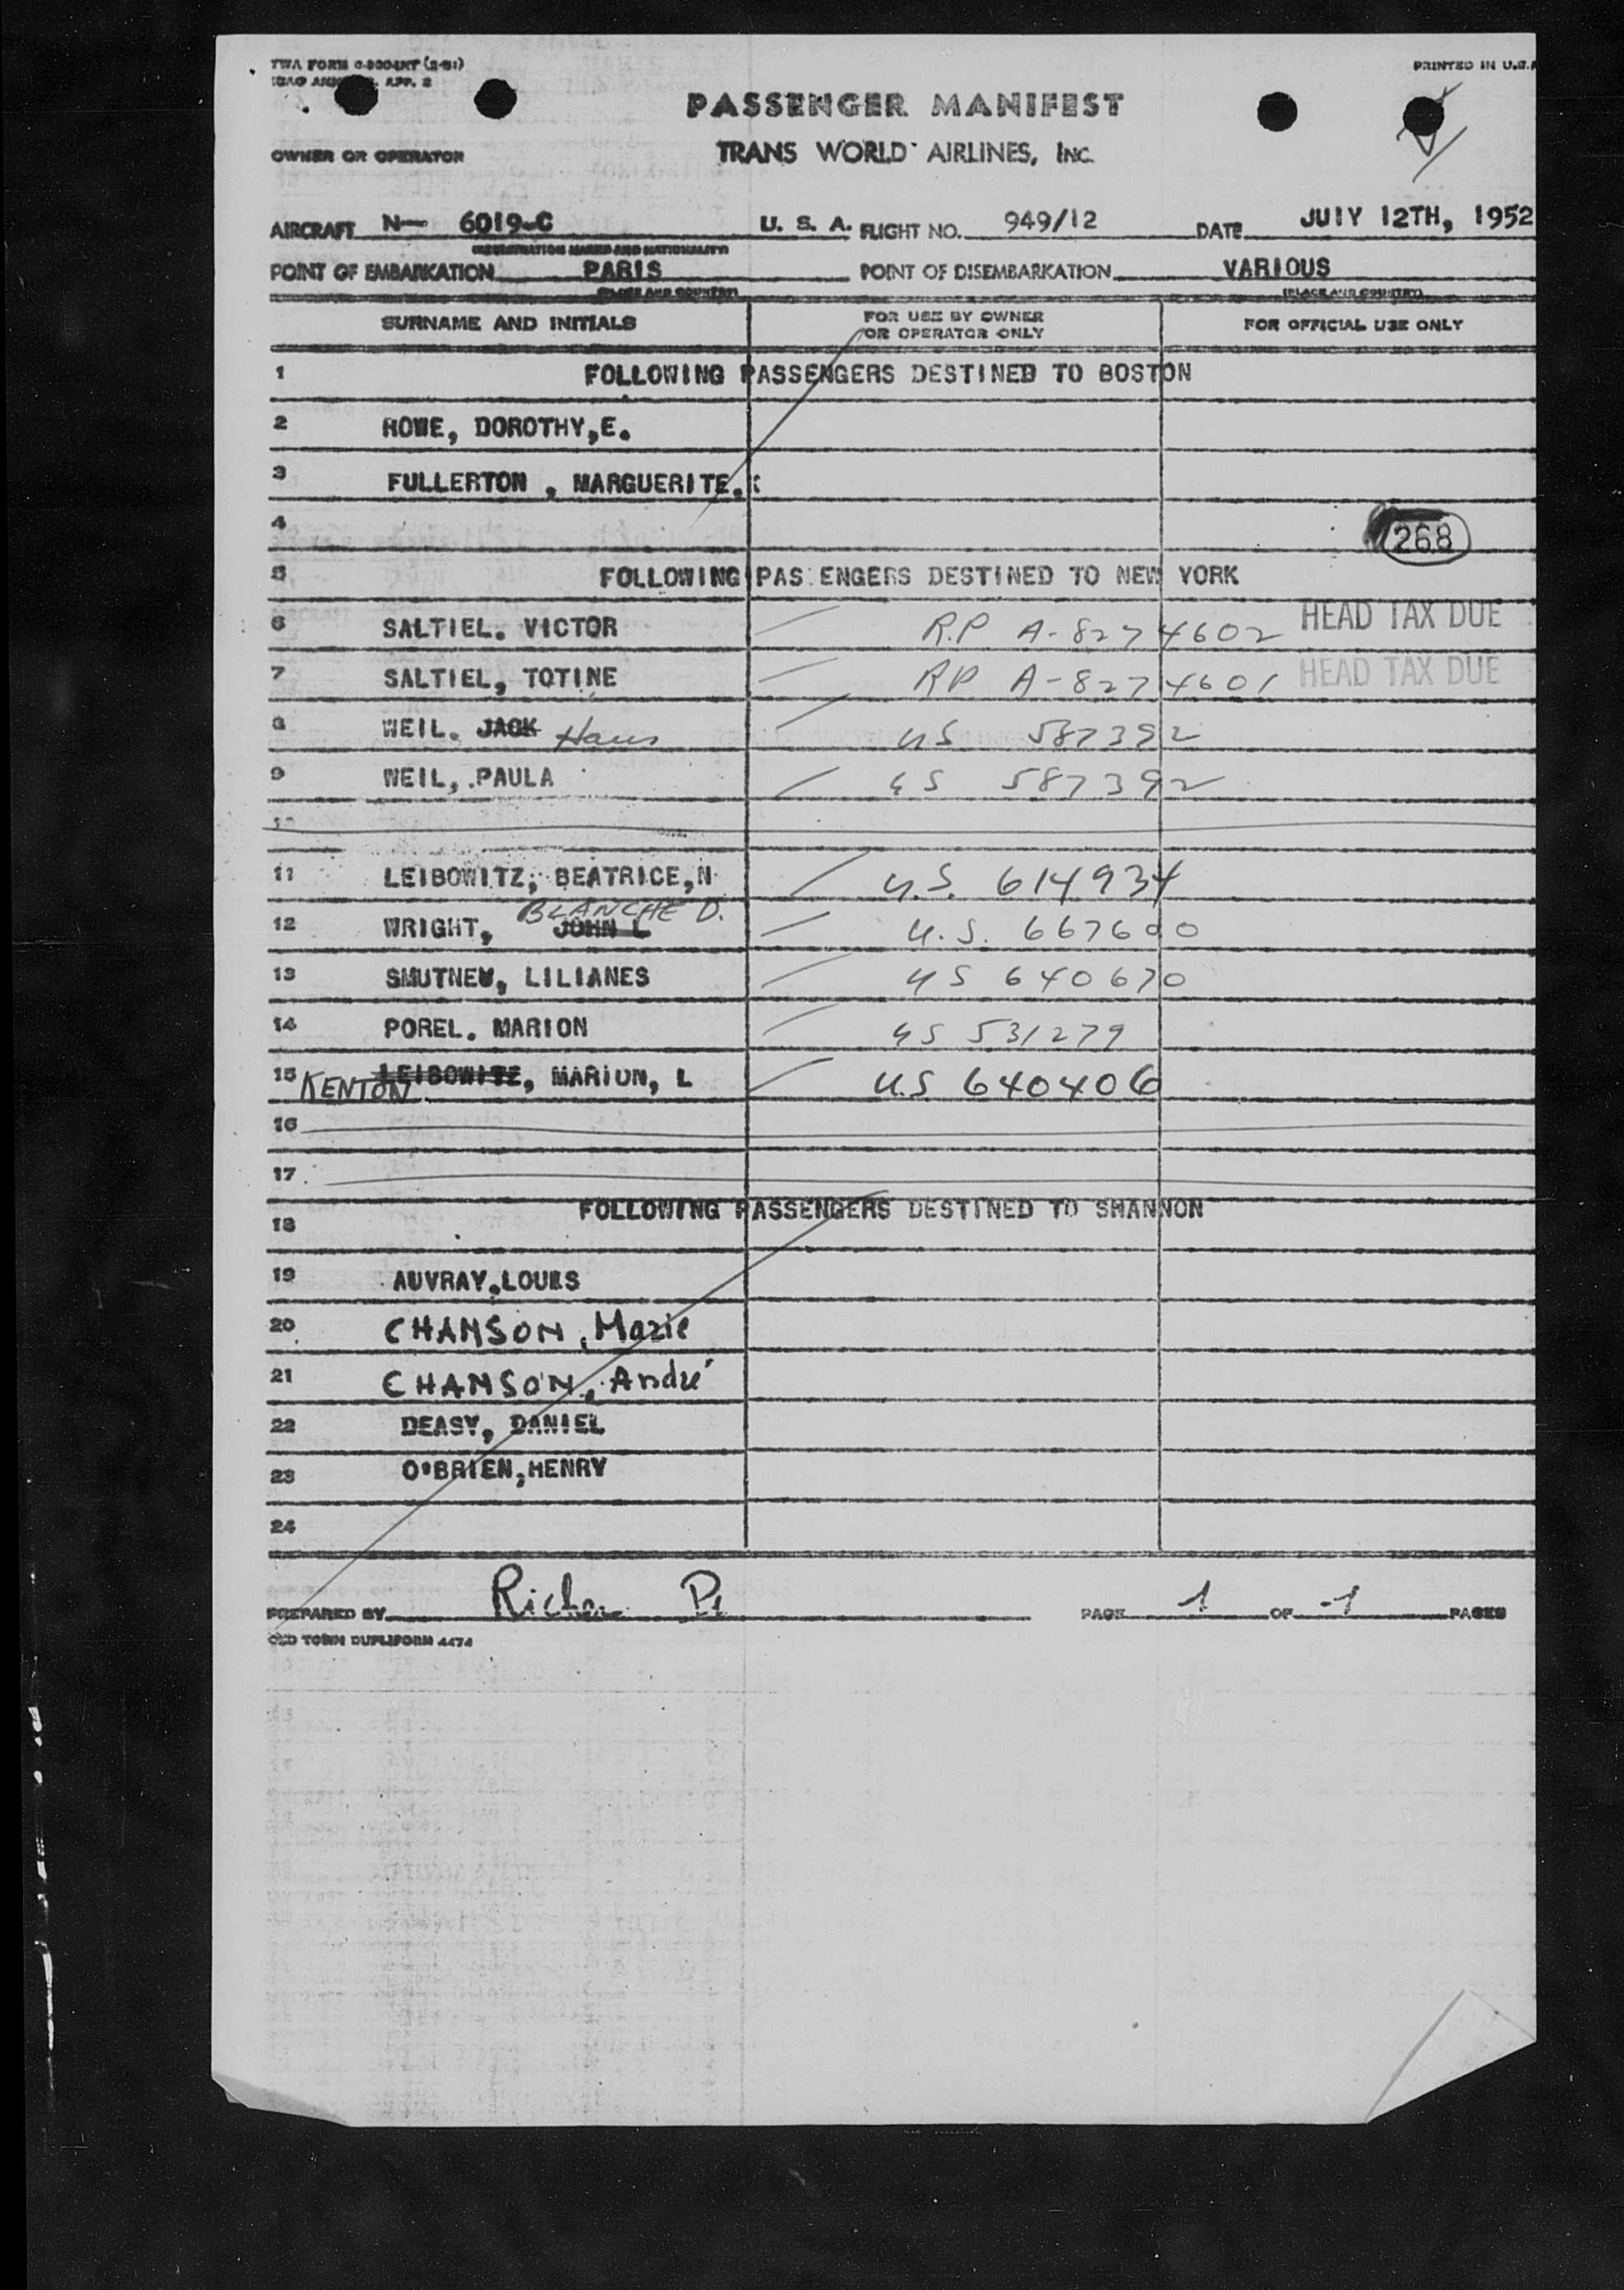 TWA FORM
PRINTED IN U.S.A
PASSENGER MANIFEST
OWNER OR OPERATOR
TRANS WORLD AIRLINES, INC.
AIRCRAFT N— 6019-C U. S. A. FLIGHT NO. 949/12 DATE JULY 12TH, 1952
(REGISTRATION MARKS AND NATIONALITY)
POINT OF EMBARKATION PARIS POINT OF DISEMBARKATION VARIOUS
(PLACE AND COUNTRY) (PLACE AND COUNTRY)
SURNAME AND INITIALS FOR USE BY OWNER OR OPERATOR ONLY FOR OFFICIAL USE ONLY
1 FOLLOWING PASSENGERS DESTINED TO BOSTON
2 ROWE, DOROTHY,E.
3 FULLERTON , MARGUERITE,
4
268
5 FOLLOWING PAS ENGERS DESTINED TO NEW YORK
6 SALTIEL. VICTOR R.P A-8274602 HEAD TAX DUE
7 SALTIEL, TOTINE RP A-8274601 HEAD TAX DUE
8 WEIL. JACK Hans US 587392
9 WEIL, PAULA US 587392
11 LEIBOWITZ, BEATRICE,N U.S. 614934
BLANCHE D.
12 WRIGHT, JOHN L U.S. 667600
13 SMUTNEW, LILIANES US 640670
14 POREL. MARION US 531279
15 KENTON LEIBOWITZ, MARION, L U.S 640406
16
17
18 FOLLOWING PASSENGERS DESTINED TO SHANNON
19 AUVRAY,LOUIS
20 CHANSON, Marie
21 CHANSON, André
22 DEASY, DANIEL
23 O'BRIEN,HENRY
24
PREPARED BY PAGE 1 OF 1 PAGES
OLD TOWN DUPLIFORM 4474